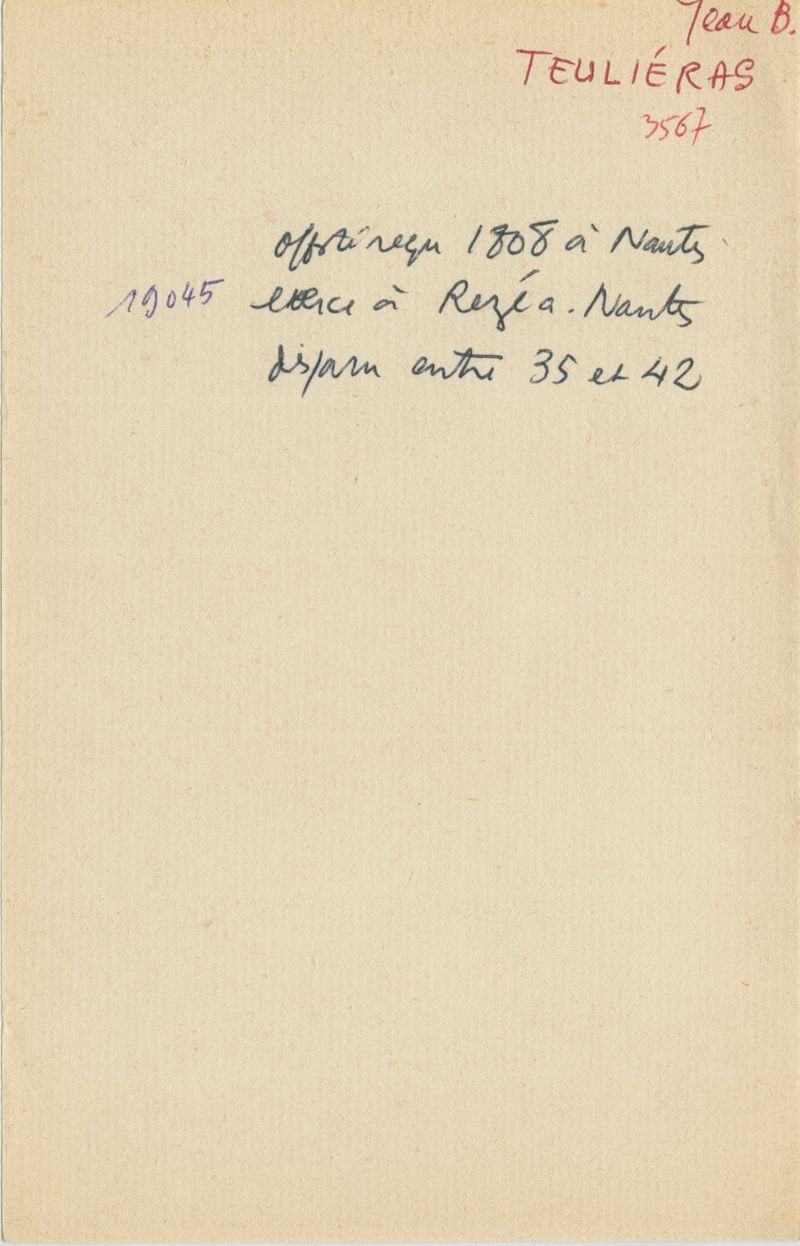 Jean B.
TEULIÉRAS
3567
offté reçu 1808 à Nantes
19045 exerce à Rezéa. Nantes
disparu entre 35 et 42